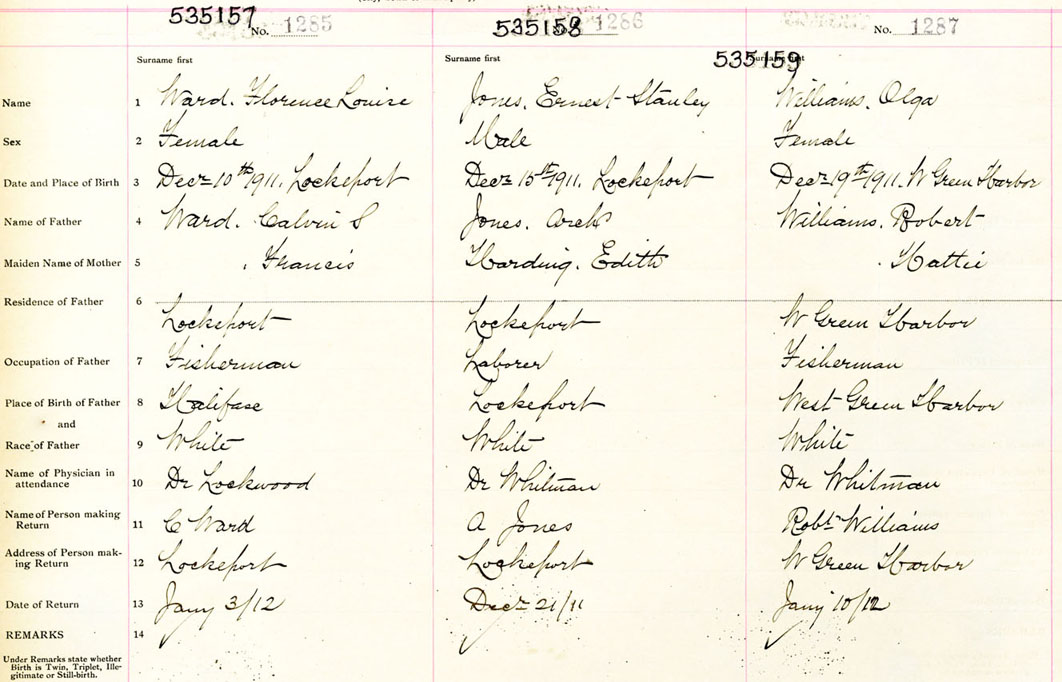 535157 No. 1285 535158 1286 No. 1287
Surname first Surname first 535159 Surname first
Name 1 Ward. Florence Louise Jones. Ernest Stanley Williams. Olga
Sex 2 Female Male Female
Date and Place of Birth 3 Decr 10th 1911. Lockeport Decr 15th 1911. Lockeport Decr 19th 1911. W Green Harbor
Name of Father 4 Ward. Calvin S Jones. Arch Williams. Robert
Maiden Name of Mother 5 . Francis Harding. Edith . Hattie
Residence of Father 6
Lockeport Lockeport W Green Harbor
Occupation of Father 7 Fisherman Laborer Fisherman
Place of Birth of Father 8 Halifax Lockeport West Green Harbor
and
Race of Father 9 White White White
Name of Physician in
attendance 10 Dr Lockwood Dr Whitman Dr Whitman
Name of Person making
Return 11 C Ward A Jones Robt Williams
Address of Person mak-
ing Return 12 Lockeport Lockeport W Green Harbor
Date of Return 13 Jany 3/12 Decr 21/11 Jany 10/12
REMARKS 14
Under Remarks state whether
Birth is Twin, Triplet, Ille-
gitimate or Still-birth.